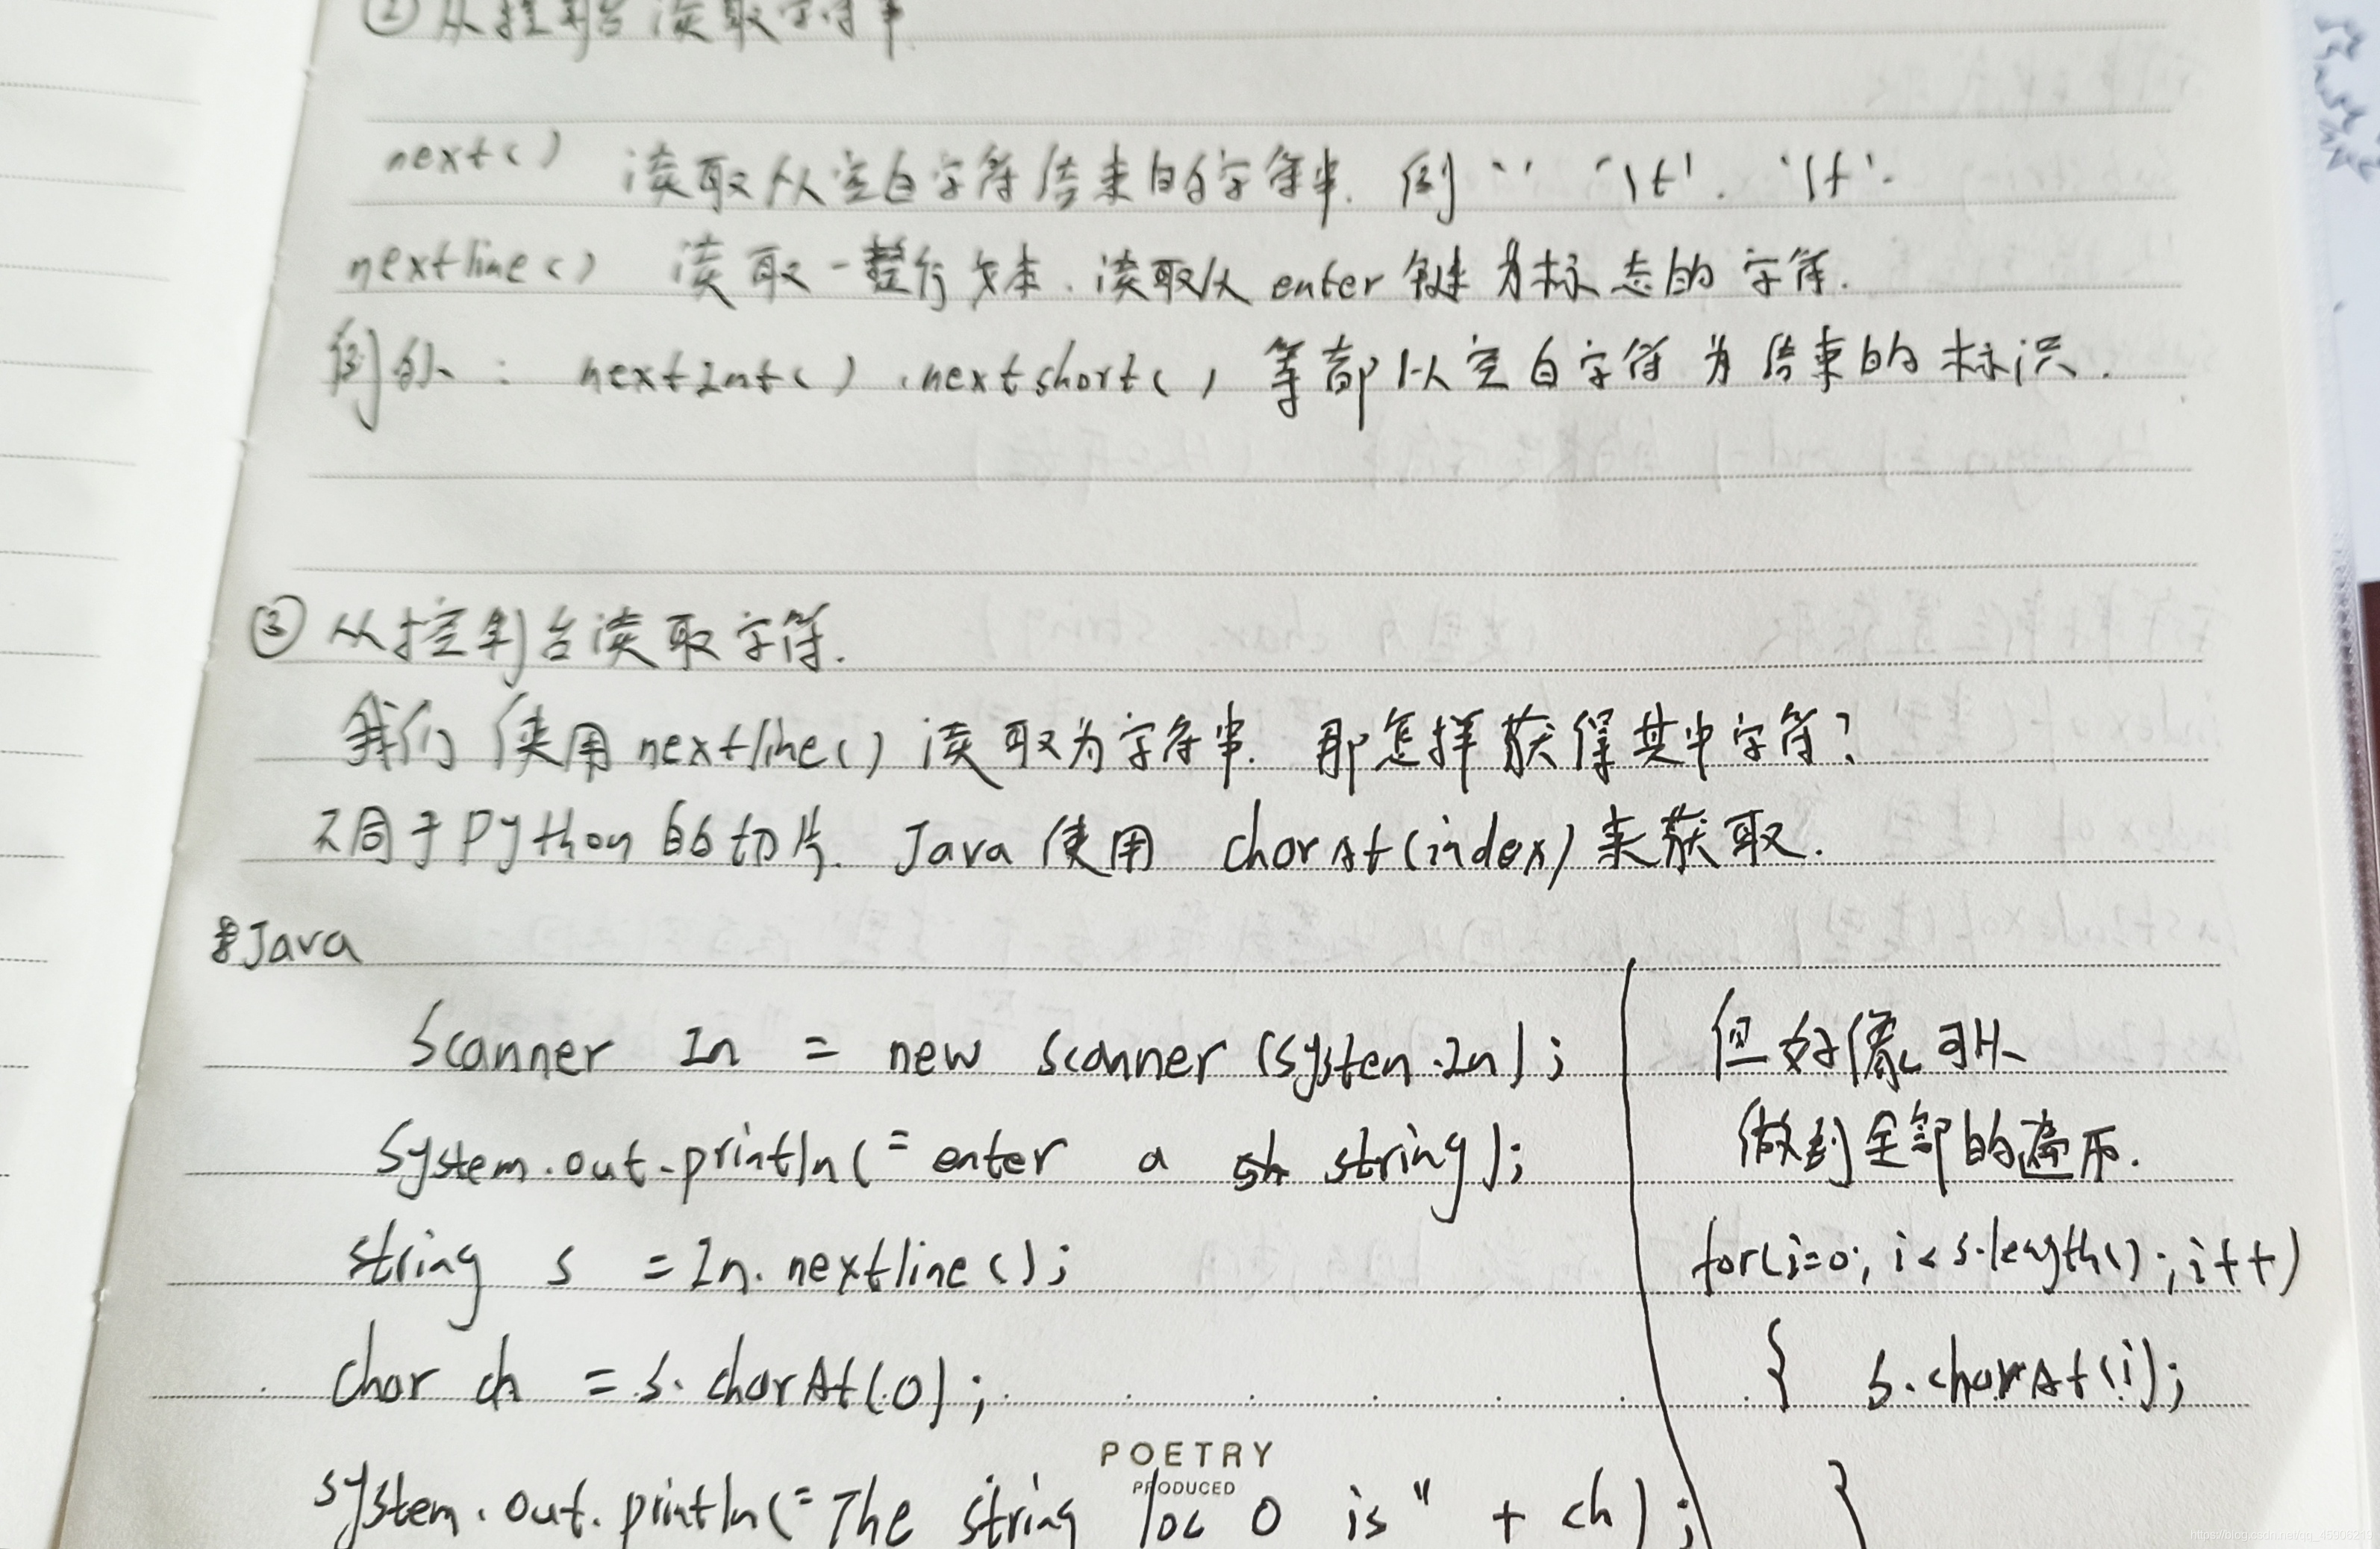 ② 从控制台读取字符串
next() 读取从空白字符结束的字符串. 例 ' ' '\t'. '\f'.
nextline() 读取一整行文本. 读取从 enter 键为标志的字符.
例如: nextInt() .nextshort() 等都以空白字符为结束的标识.
③ 从控制台读取字符.
我们使用nextline() 读取为字符串. 那怎样获得其中字符?
不同于Python的切片. Java使用 charAt(index)来获取.
Java
Scanner In = new Scanner (System.In);
System.out.println(" enter a string);
string s = In.nextline();
char ch = s.charAt(0);
system.out.println("The string loc 0 is" + ch);
但好像可以
做到全部的遍历.
for(i=0; i<s.length(); i++)
{ s.charAt(i);
}
POETRY
PRODUCED